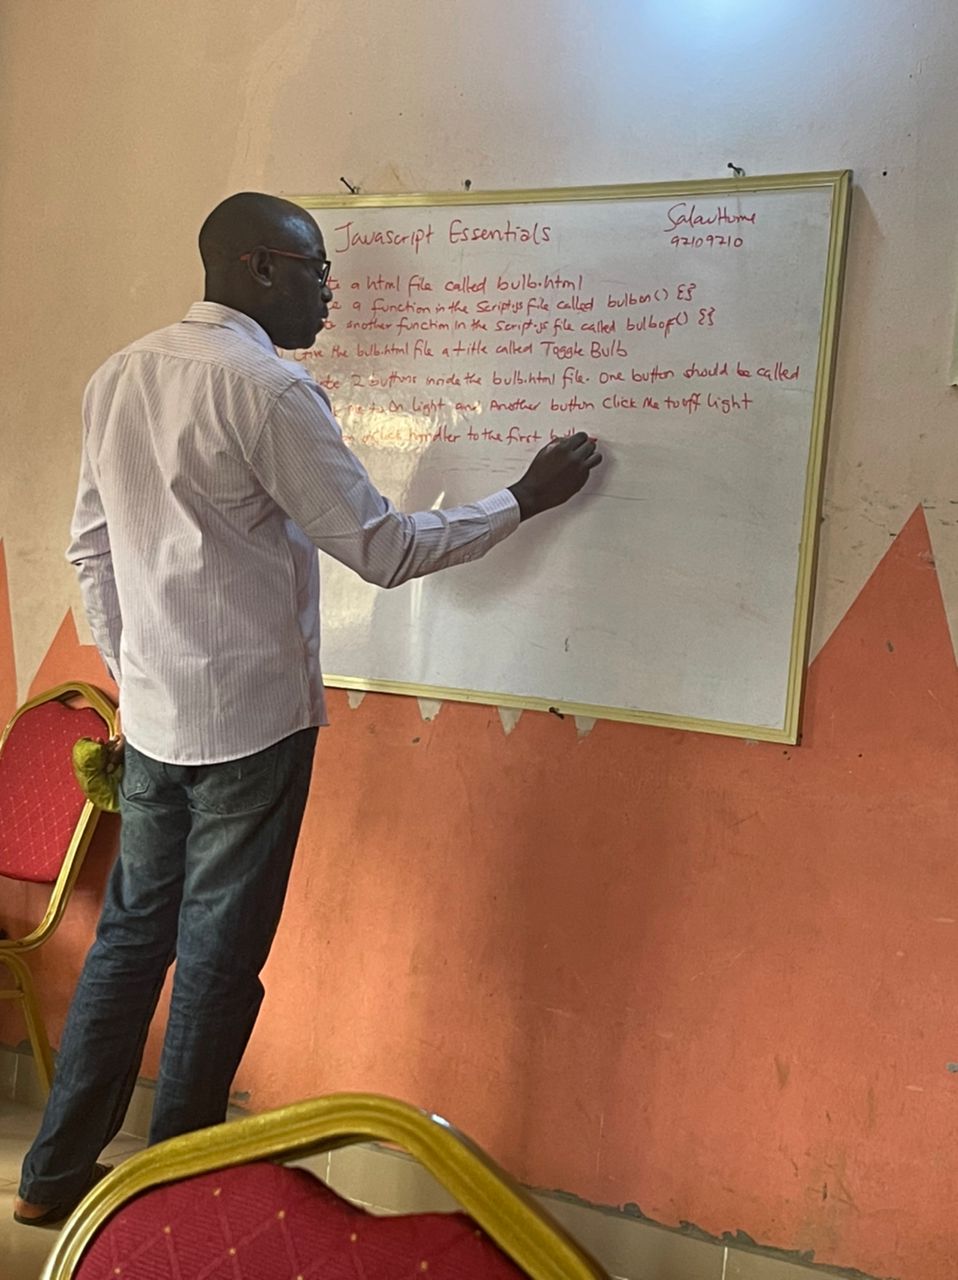 Javascript Essentials
SalauHome
92109210
a html file called bulb.html
a function in the Script.js file called bulbon() {}
another function in the Script.js file called bulbof() {}
Give the bulb.html file a title called Toggle Bulb
2 buttons inside the bulb.html file. One button should be called
on light and Another button Click Me to off light
click handler to the first